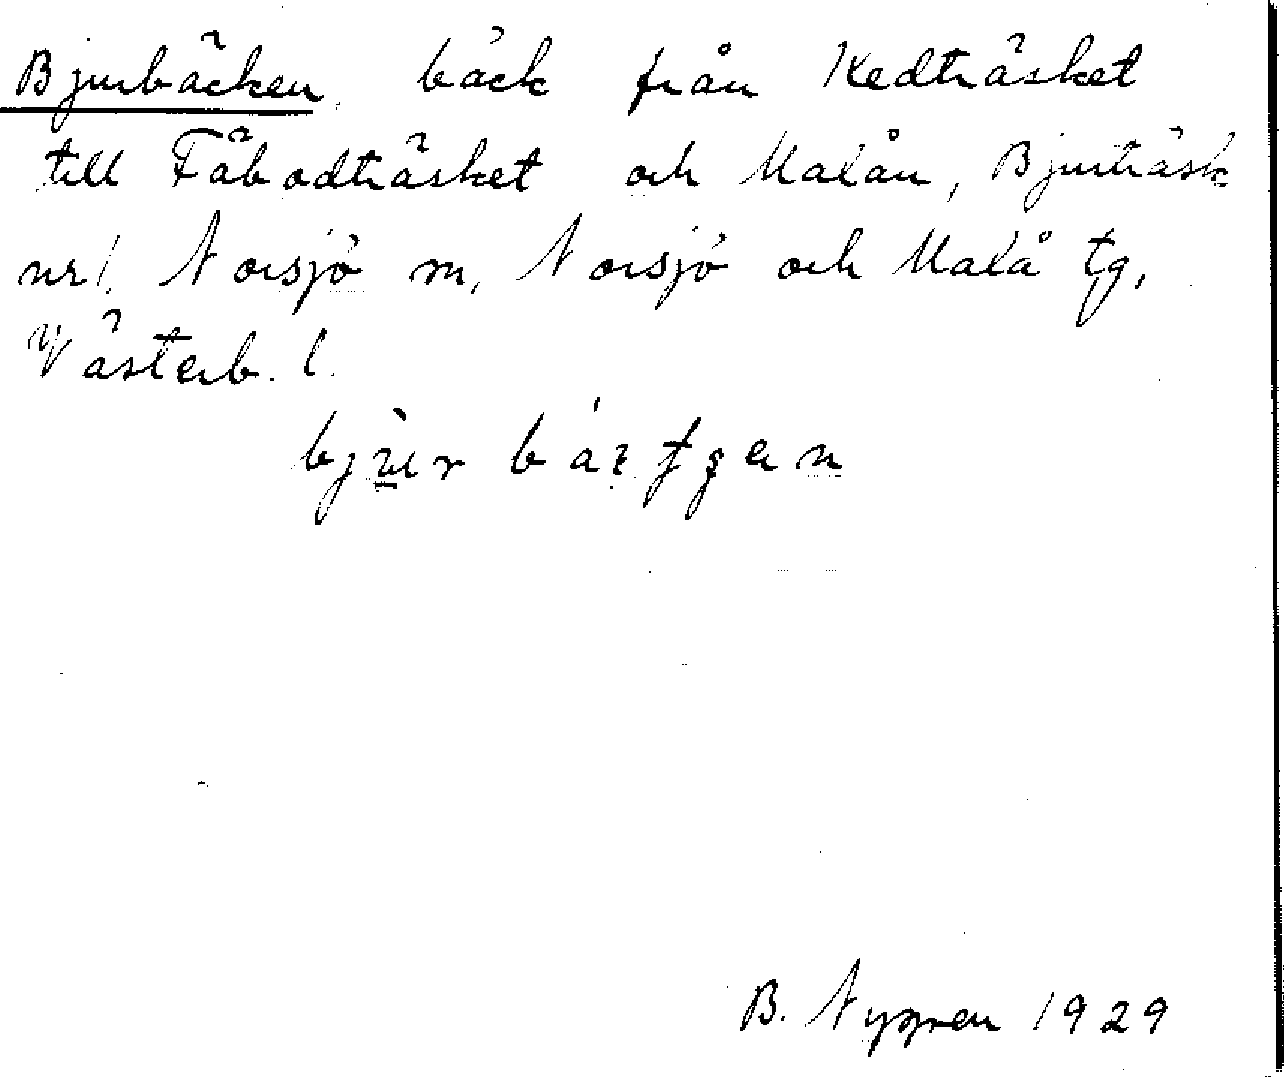 Bjurbäcken, bäck från Kedträsket
till Fäbodträsket och Malån, Bjurträsk
nr 1, Norsjö sn, Norsjö och Malå tg,
Västerb. l.
B. Nygren 1929